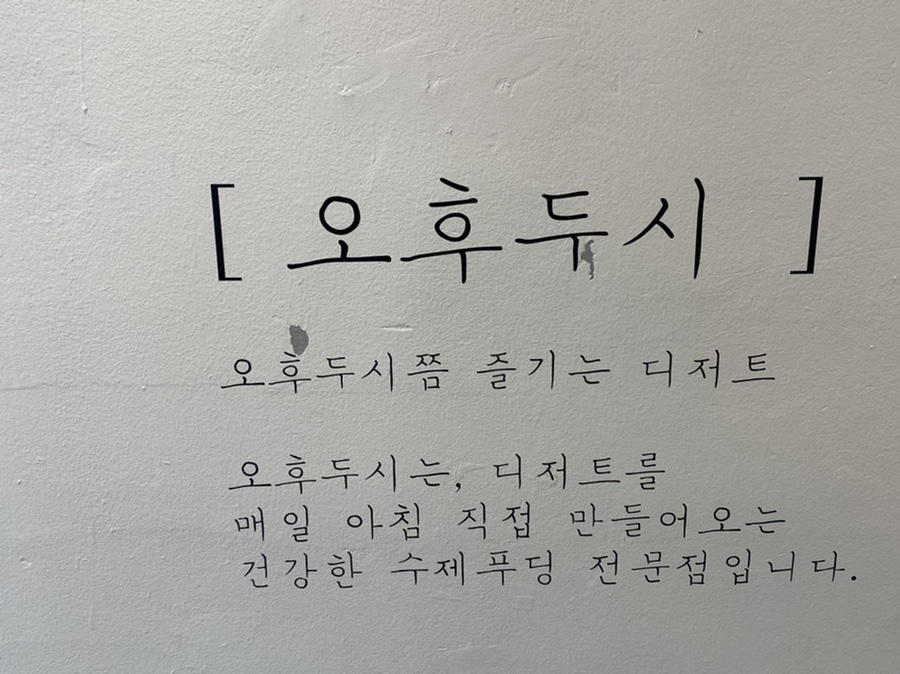 [ 오후두시 ]
오후두시쯤 즐기는 디저트
오후두시는, 디저트를
매일 아침 직접 만들어오는
건강한 수제푸딩 전문점입니다.